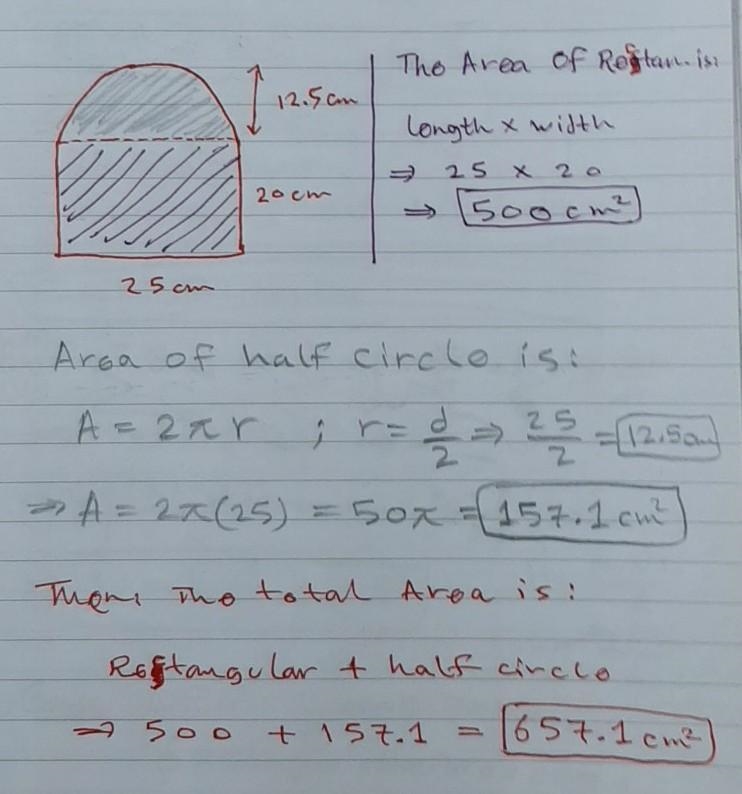 12.5cm
20cm
25cm
The Area of Rectan. is:
length x width
⇒ 25 x 20
⇒ 500 cm²
Area of half circle is:
A = 2πr ; r = d/2 ⇒ 25/2 = 12.5cm
⇒ A = 2π(25) = 50π = 157.1 cm²
Then, The total Area is:
Rectangular + half circle
⇒ 500 + 157.1 = 657.1 cm²